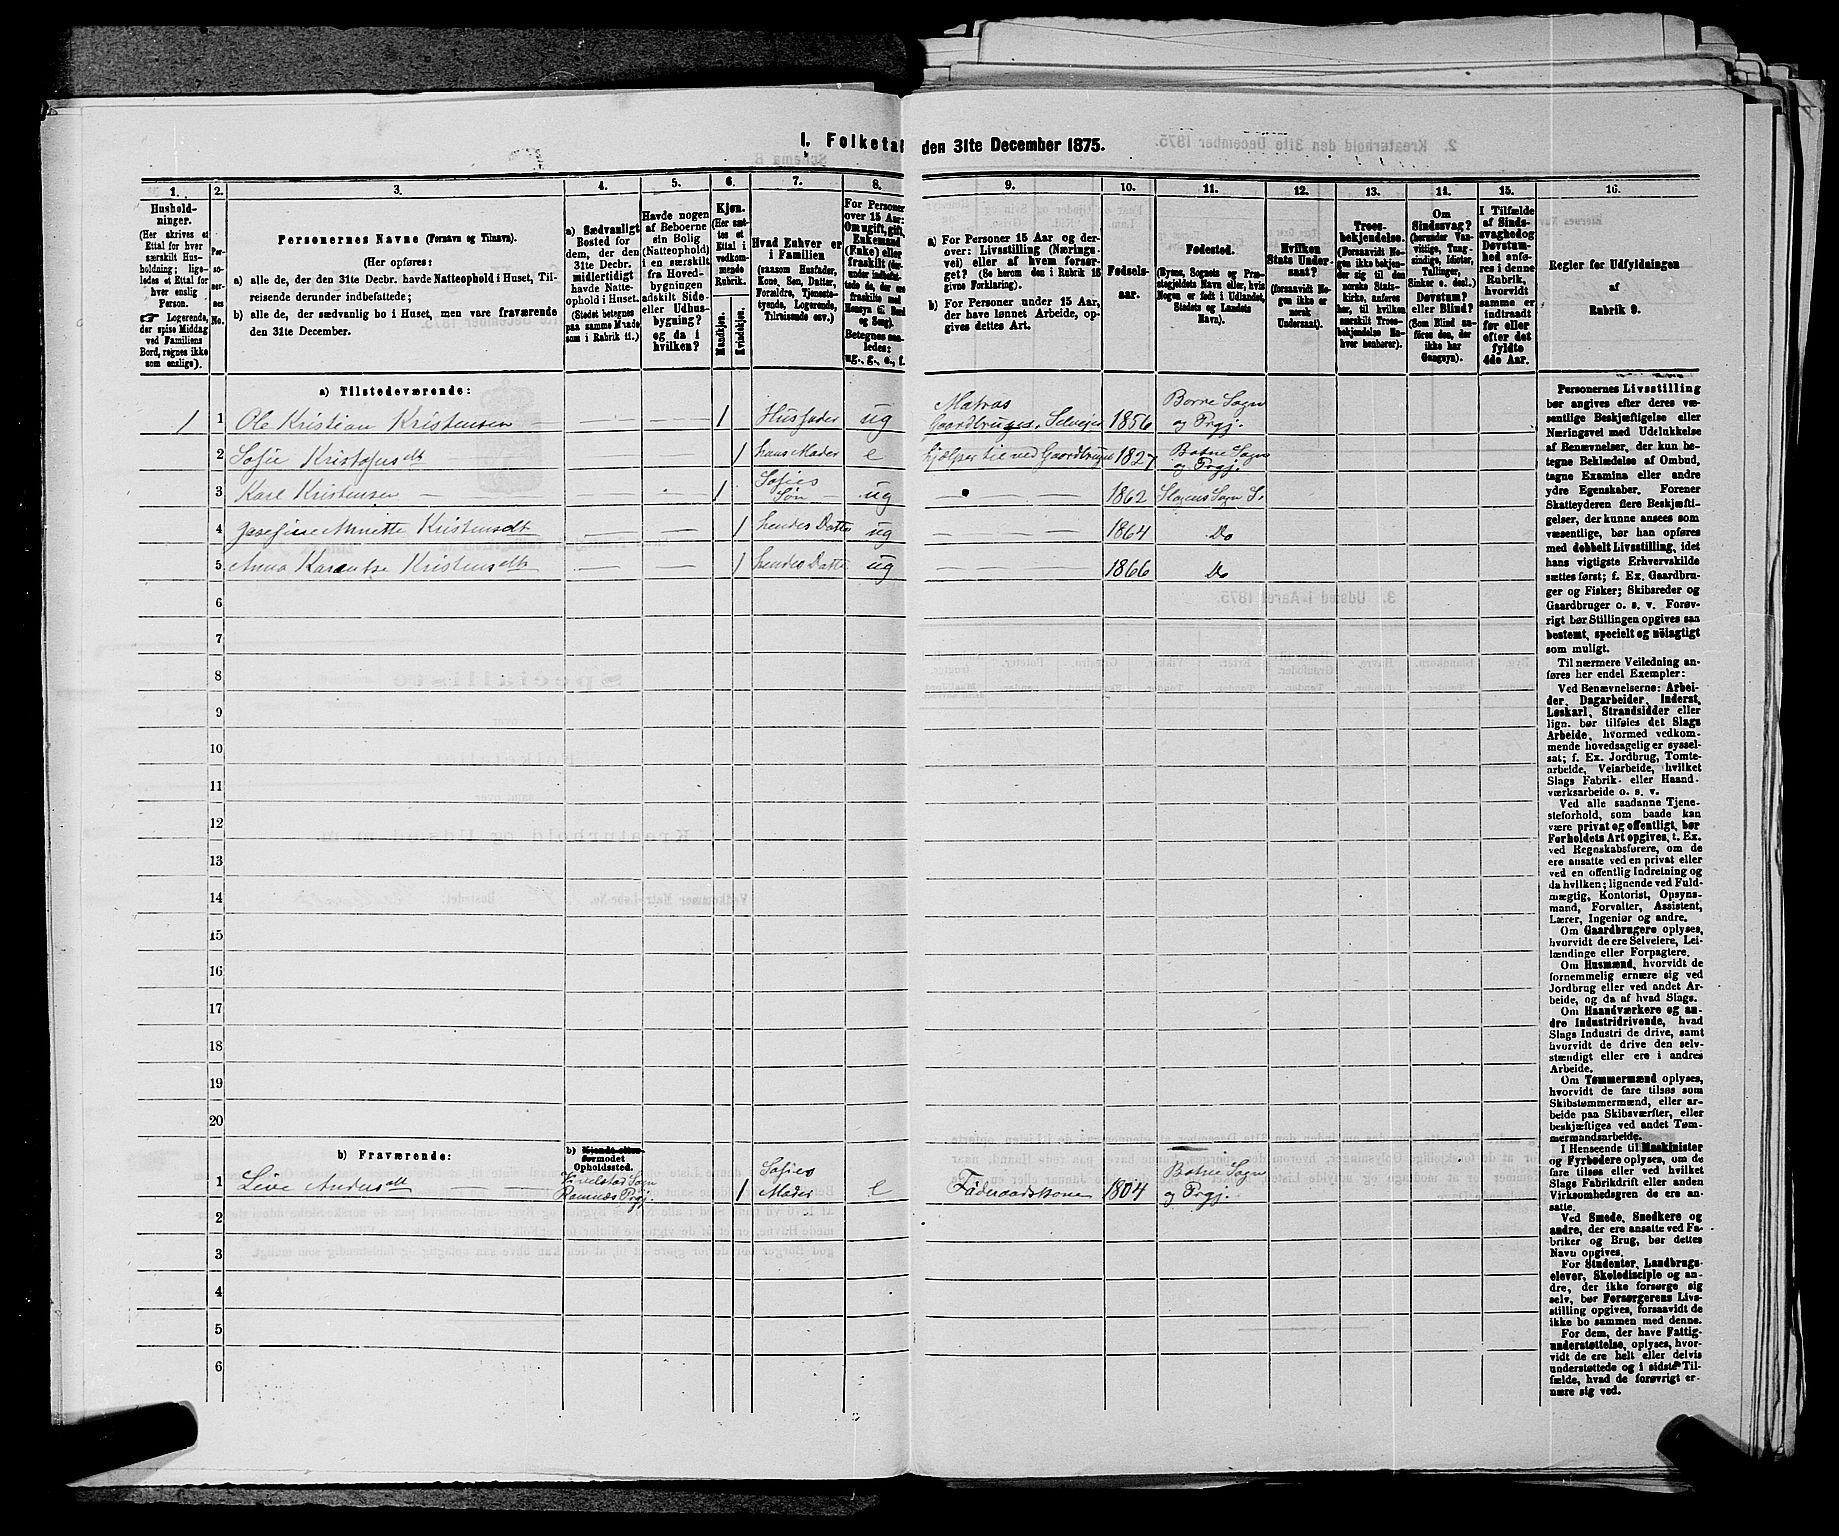 1. Folketæl den 31te December 1875.
1.
2.
3.
4.
5.
6.
7.
8.
9.
10.
11.
12.
13.
14.
15.
16.
Hushold-
ninger.
(Her skrives et
Ettal for hver
særskilt Hus-
holdning; lige-
ledes et Ettal for
hver enslig
Person.
☛ Logerende,
der spise Middag
ved Familiens
Bord, regnes ikke
som enslige).
Per-
so-
ner-
nes
No.
Personernes Navne (Fornavn og Tilnavn).
(Her opføres:
a) alle de, der den 31te Decbr. havde Natteophold i Huset, Til-
reisende derunder indbefattede;
b) alle de, der sædvanlig bo i Huset, men vare fraværende
den 31te December.
a) Sædvanligt
Bosted for
dem, der den
31te Decbr.
midlertidigt
havde Natte-
ophold i Huset.
(Stedet betegnes
paa samme Maade
som i Rubrik 11.)
Havde nogen
af Beboerne
sin Bolig
(Natteophold)
i en særskilt
fra Hoved-
bygningen
adskilt Side-
eller Udhus-
bygning?
og da i
hvilken?
Kjøn.
(Her sæt-
tes et
Ettal i
vedkom-
mende
Rubrik.
Mandkjøn.
Kvindekjøn.
Hvad Enhver er
i Familien
(saasom Husfader,
Kone, Søn, Datter,
Forældre, Tjeneste-
tyende, Logerende,
Tilreisende osv.)
For Personer
over 15 Aar:
Om ugift, gift,
Enkemand
(Enke) eller
fraskilt
Betegnes saa-
ledes:
ug., g., e., f.
a) For Personer 15 Aar og der-
over: Livsstilling (Nærings-
vei) eller af hvem forsør-
get? (Se herom den i Rubrik 16
givne Forklaring).
b) For Personer under 15 Aar,
der have lønnet Arbeide, op-
gives dettes Art.
Fødsels-
aar.
Fødested.
(Byens, Sognets og Præ-
stegjeldets Navn eller, hvis
Nogen er født i Udlandet,
Stedets og Landets
Navn).
Hvilken
Stats Under-
saat?
(forsaavidt No-
gen ikke er
norsk
Undersaat).
Troes-
bekjendelse.
(Forsaavidt No-
gen ikke bekjen-
der sig til den
norske Stats-
kirke, anføres
her, til hvilken
særskilt Troes-
bekjendelse En-
hver henhører).
Om
Sindssvag?
(herunder Van-
vittige, Tung-
sindige, Idioter,
Tullinger,
Sinker o. desl.)
Døvstum?
eller Blind?
(Som Blind an-
føres den, der
ikke har
Gangsyn).
I Tilfælde
af Sinds-
svaghed og
Døvstum-
hed anfø-
res i denne
Rubrik,
hvorvidt
samme er
indtraadt
før eller
efter det
fyldte
4de Aar.
Regler for Udfyldningen
af
Rubrik 9.
a) Tilstedeværende:
1 1 Ole Kristian Kristensen — — 1 Husfader ug Matros Gaardbruger, Selveier 1856 Borre Sogn og Prgj.
2 Sofie Kristofersdt — — 1 hans Moder e hjælper til ved Gaardbruget 1827 Botne Sogn og Prgj.
3 Karl Kristensen — — 1 Sofies Søn ug — — 1862 Slagens Sogn S.
4 Josefine Annette Kristensdt — — 1 hendes Datter ug — — 1864 Do
5 Anna Karentse Kristensdtr — — 1 hendes Datter ug — — 1866 Do
6
7
8
9
10
11
12
13
14
15
16
17
18
19
20
b) Fraværende:
b) Kjendt eller
formodet
Opholdssted.
1 Live Andersdtt — — Ramnæs Prgj. 1 Sofies Moder e Føderaadskone 1804 Botne Sogn og Prgj.
2
3
4
5
6
Personernes Livsstilling
bør angives efter deres væ-
sentlige Beskjæftigelse eller
Næringsvei med Udelukkelse
af Benævnelser, der kun be-
tegne Beklædelse af Ombud,
tagne Examina eller andre
ydre Egenskaber. Forener
Skatteyderen flere Beskjæfti-
gelser, der kunne ansees som
væsentlige, bør han opføres
med dobbelt Livsstilling, idet
hans vigtigste Erhvervskilde
sættes først; f. Ex. Gaardbru-
ger og Fisker; Skibsreder og
Gaardbruger o. s. v. Forøv-
rigt bør Stillingen opgives saa
bestemt, specielt og nöiagtigt
som muligt.
Til nærmere Veiledning an-
føres her endel Exempler:
Ved Benævnelserne: Arbei-
der, Dagarbeider, Inderst,
Løskarl, Strandsidder eller
lign. bør tilføies det Slags
Arbeide, hvormed vedkom-
mende hovedsagelig er syssel-
sat; f. Ex. Jordbrug, Tomte-
arbeide, Veiarbeide, hvilket
Slags Fabrik- eller Haand-
værksarbeide o. s. v.
Ved alle saadanne Tjene-
steforhold, som baade kan
være privat og offentligt, bør
Forholdets Art opgives, t. Ex.
ved Regnskabsførere, om de
ere ansatte ved en privat eller
ved en offentlig Indretning og
da hvilken; lignende ved Fuld-
mægtig, Kontorist, Opsyns-
mand, Forvalter, Assistent,
Lærer, Ingeniør og andre.
Om Gaardbrugere oplyses,
hvorvidt de ere Selveiere, Lei-
lændinge eller Forpagtere.
Om Husmænd, hvorvidt de
fornemmelig ernære sig ved
Jordbrug eller ved andet Ar-
beide, og da af hvad Slags.
Om Haandværkere og an-
dre Industridrivende, hvad
Slags Industri de drive, samt
hvorvidt de drive den selv-
stændigt eller ere i andres
Arbeide.
Om Tømmermænd oplyses,
hvorvidt de fare tilsøs som
Skibstømmermænd, eller ar-
beide paa Skibsværfter, eller
beskjæftiges ved andet Tøm-
mermandsarbeide.
I Henseende til Maskinister
og Fyrbødere oplyses, om de
fare tilsøs eller ved hvilket
Slags Fabrikdrift eller anden
Virksomhedsgren de ere an-
satte.
Ved Smede, Snedkere og
andre, der ere ansatte ved Fa-
briker og Brug, bør dettes
Navn opgives.
For Studenter, Landbrugs-
elever, Skoledisciple og an-
dre, der ikke forsørge sig
selv, bør Forsørgerens Livs-
stilling opgives, forsaavidt de
ikke bo sammen med denne.
For dem, der have Fattig-
understøttelse, oplyses, hvor-
vidt de ere helt eller delvis
understøttede og i sidste Til-
fælde, hvad de forøvrigt er-
nære sig ved.